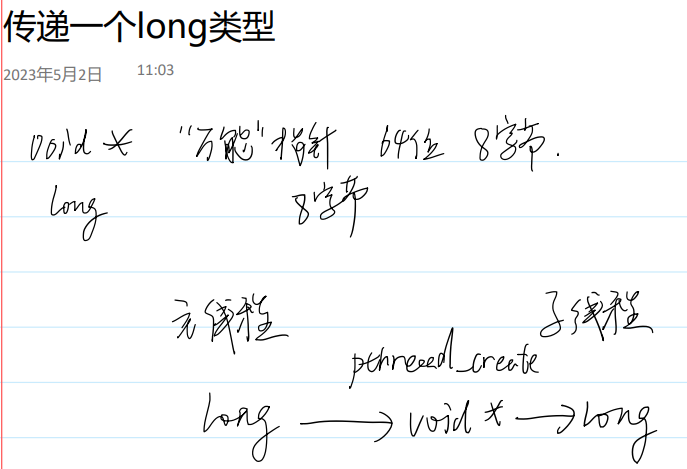 传递一个long类型
2023年5月2日 11:03
void * "万能"指针 64位 8字节.
long 8字节
主线程 子线程
pthread_create
long → void * → long